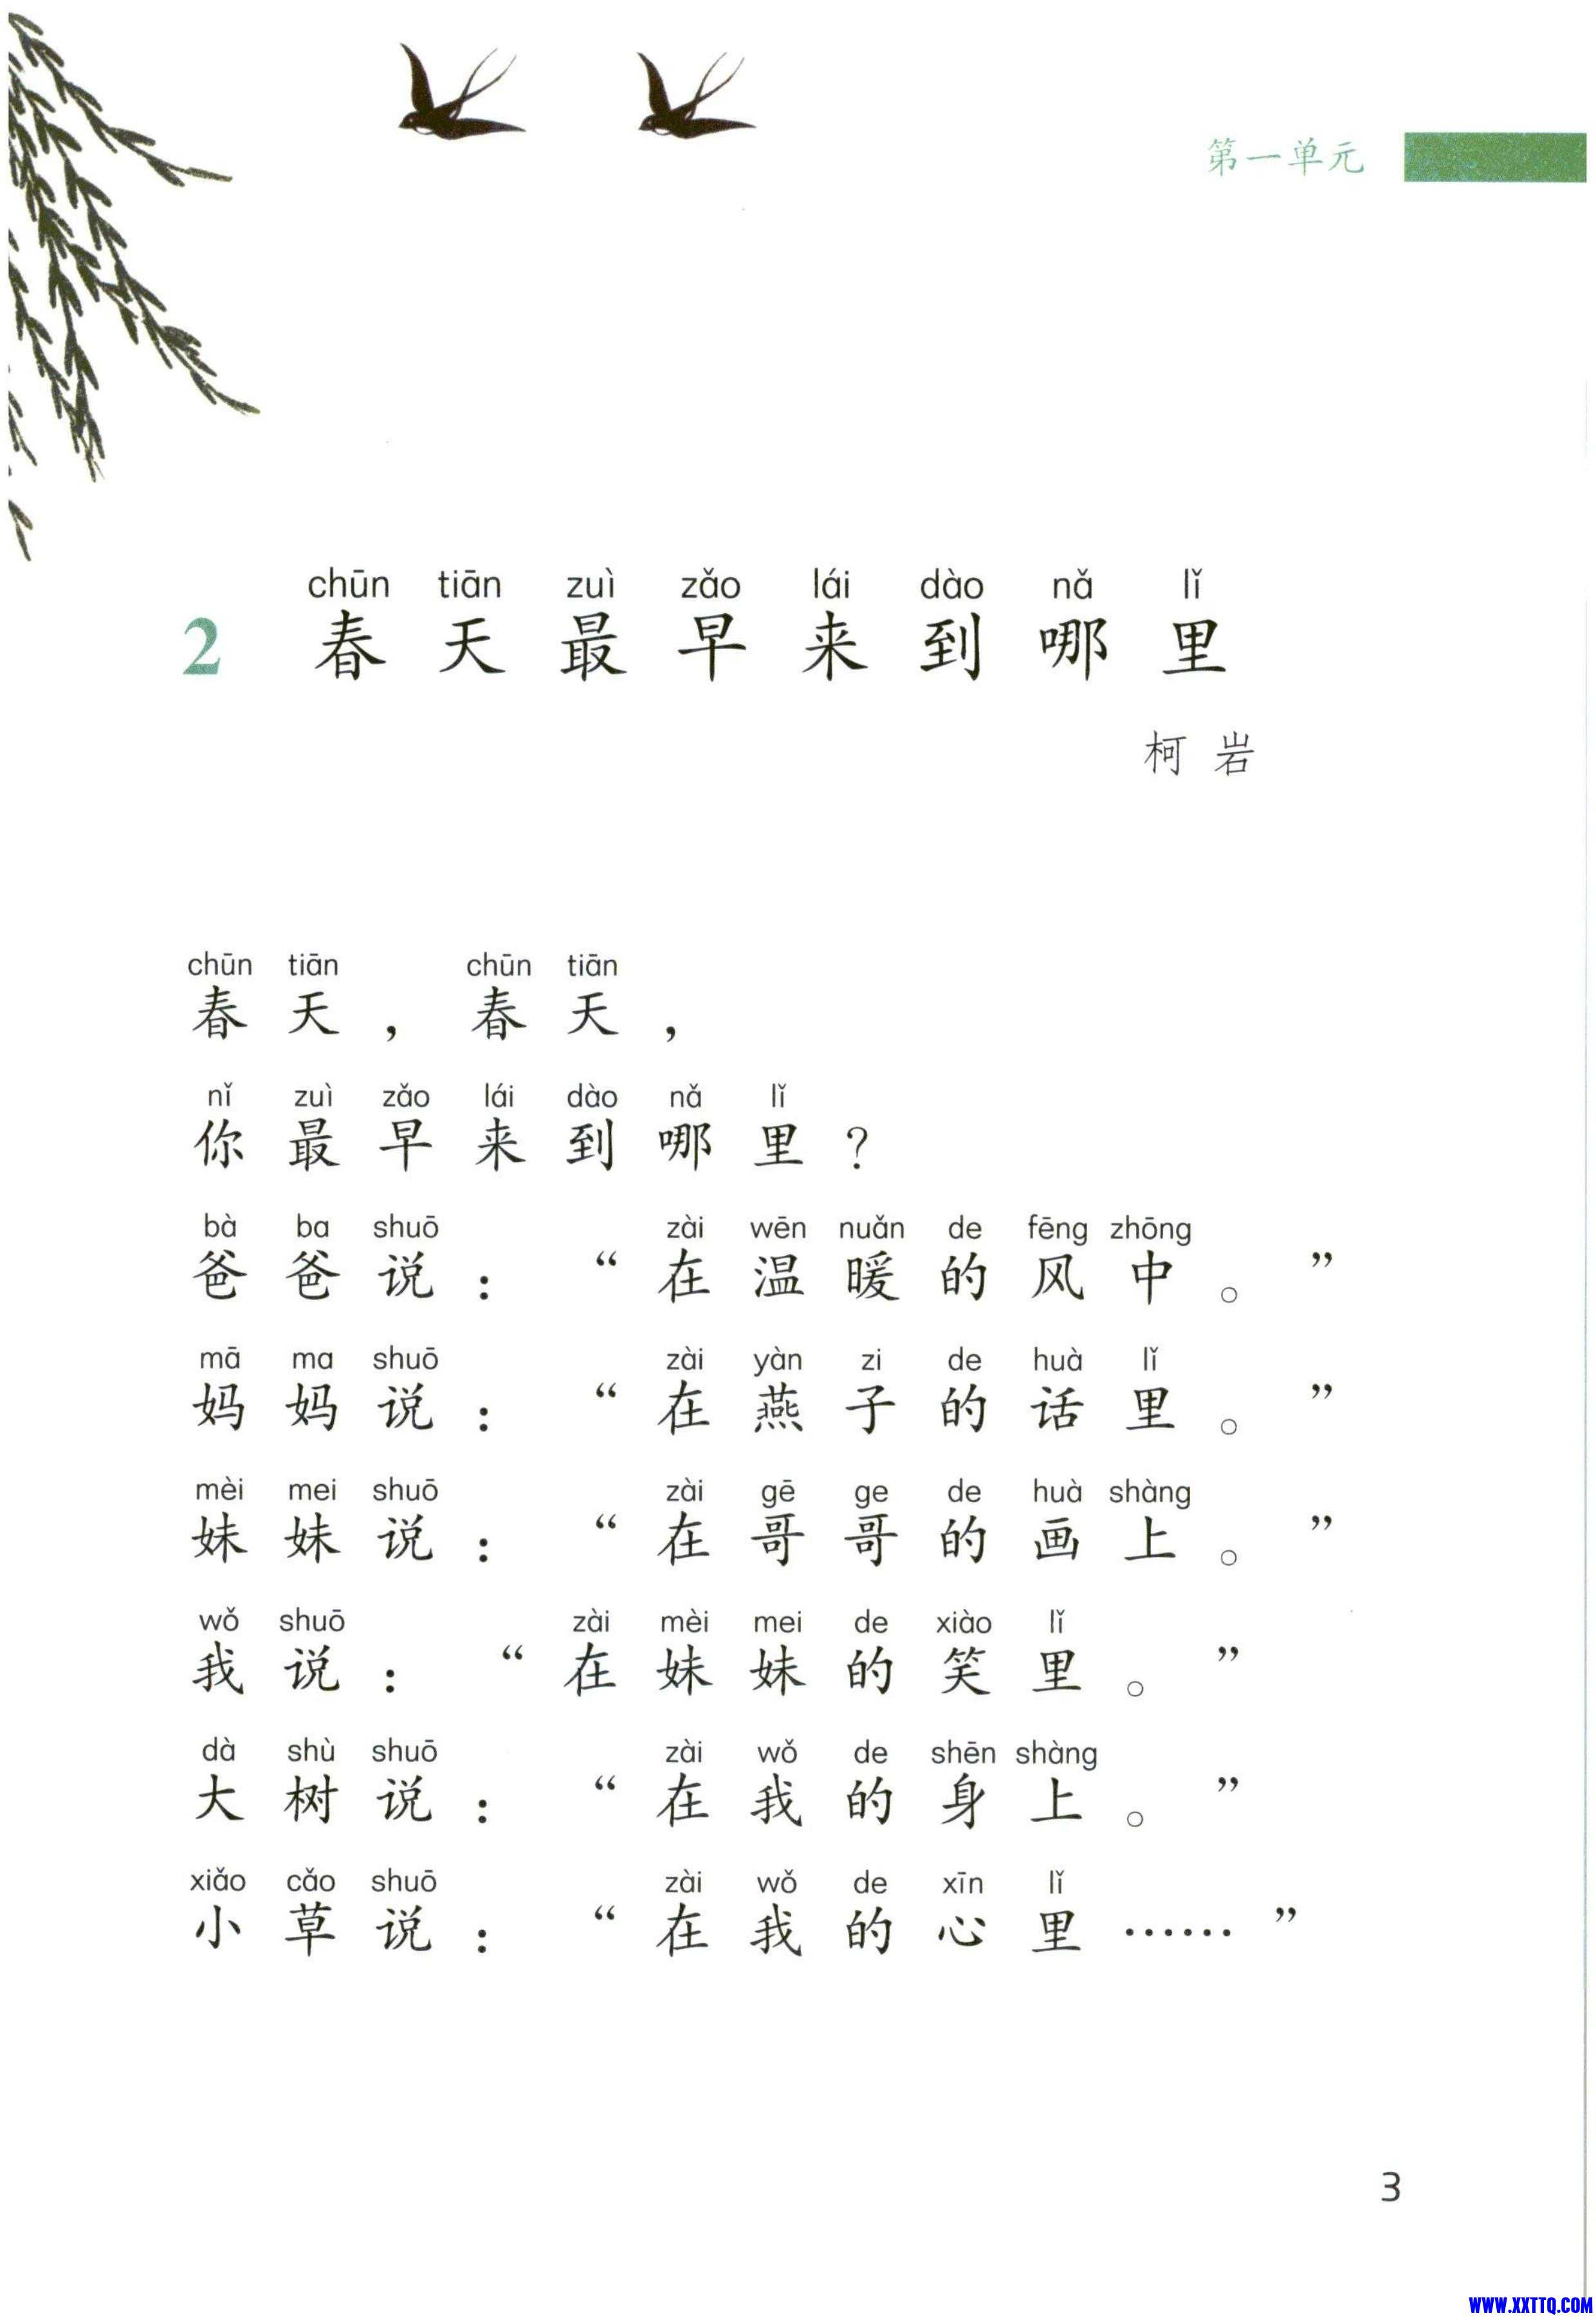 第一单元
chūn tiān zuì zǎo lái dào nǎ lǐ
2 春天最早来到哪里
柯岩
chūn tiān chūn tiān
春天，春天，
nǐ zuì zǎo lái dào nǎ lǐ
你最早来到哪里？
bà ba shuō zài wēn nuǎn de fēng zhōng
爸爸说：“在温暖的风中。”
mā ma shuō zài yàn zi de huà lǐ
妈妈说：“在燕子的话里。”
mèi mei shuō zài gē ge de huà shàng
妹妹说：“在哥哥的画上。”
wǒ shuō zài mèi mei de xiào lǐ
我说：“在妹妹的笑里。”
dà shù shuō zài wǒ de shēn shàng
大树说：“在我的身上。”
xiǎo cǎo shuō zài wǒ de xīn lǐ
小草说：“在我的心里……”
3
WWW.XXTTQ.COM